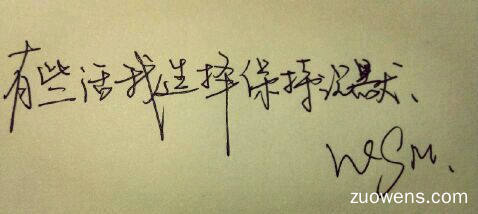 有些话我选择保持沉默、
WSM.
zuowens.com